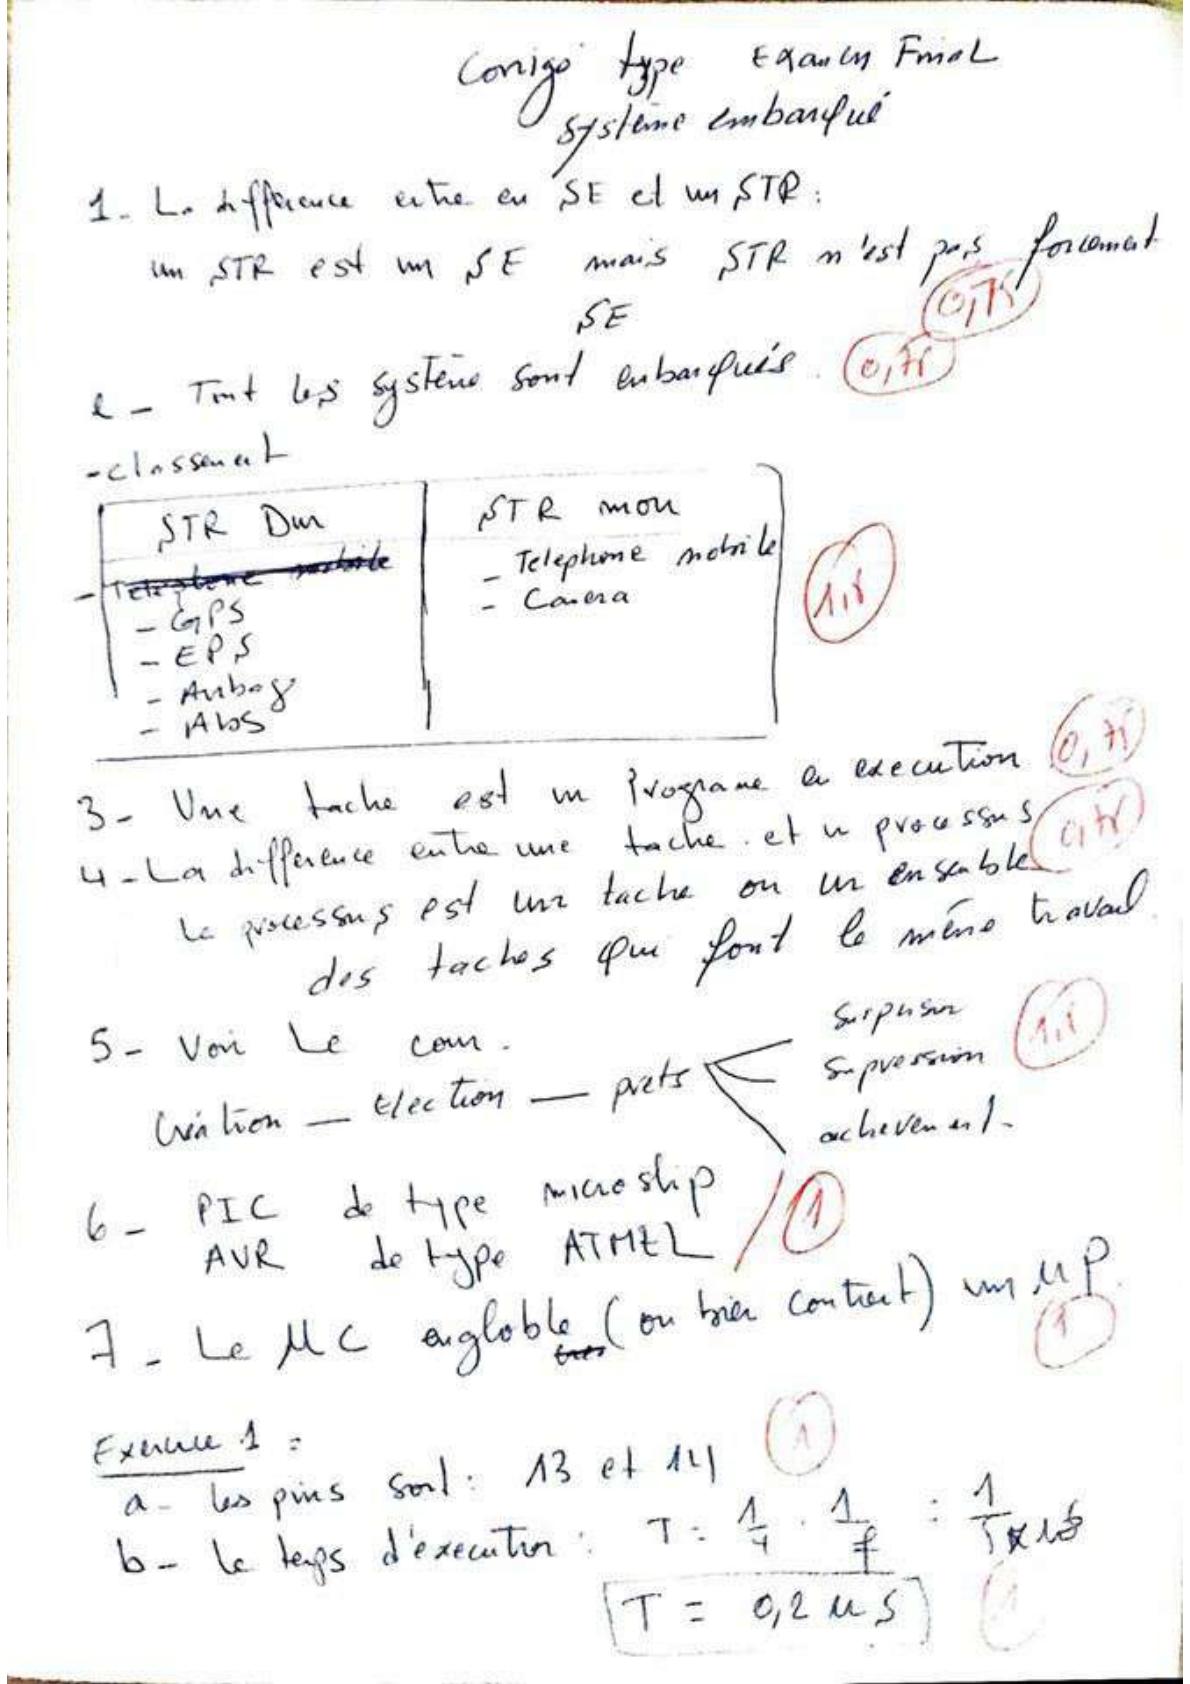 Corrigé type Examen Final
Système embarqué
1- La différence entre en SE et un STR :
un STR est un SE mais STR n'est pas forcement
SE
0,75
2- Tout les système sont enbarqués. 0,75
- classement
STR Dur
STR mou
- Telephone mobile
- Telephone mobile
- GPS
- Camera
- EPS
- Airbag
- Abs
1,5
3- Une tache est un Programe en execution 0,75
4- La difference entre une tache et un processus 0,75
le processus est une tache ou un ensenble
des taches qui font le même travail.
5- Voir Le cour. 1,5
Création — Election — prets
supression
achevement.
6- PIC de type microship
AVR de type ATMEL / 1
7- Le MC englobbe (ou bien contient) un µP. 1
Exercice 1 :
a- les pins sont : 13 et 14 1
b- le temps d'execution : T = 1/4 . 1/f =
T = 0,2 µS 1